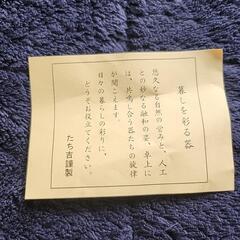 暮しを彩る器
悠久なる自然の営みと、人工
との妙なる融和の姿、卓上に
は、共鳴し合う器たちの旋律
が聞こえます。
日々の暮らしの彩りに、
どうぞお役立てください。
たち吉謹製